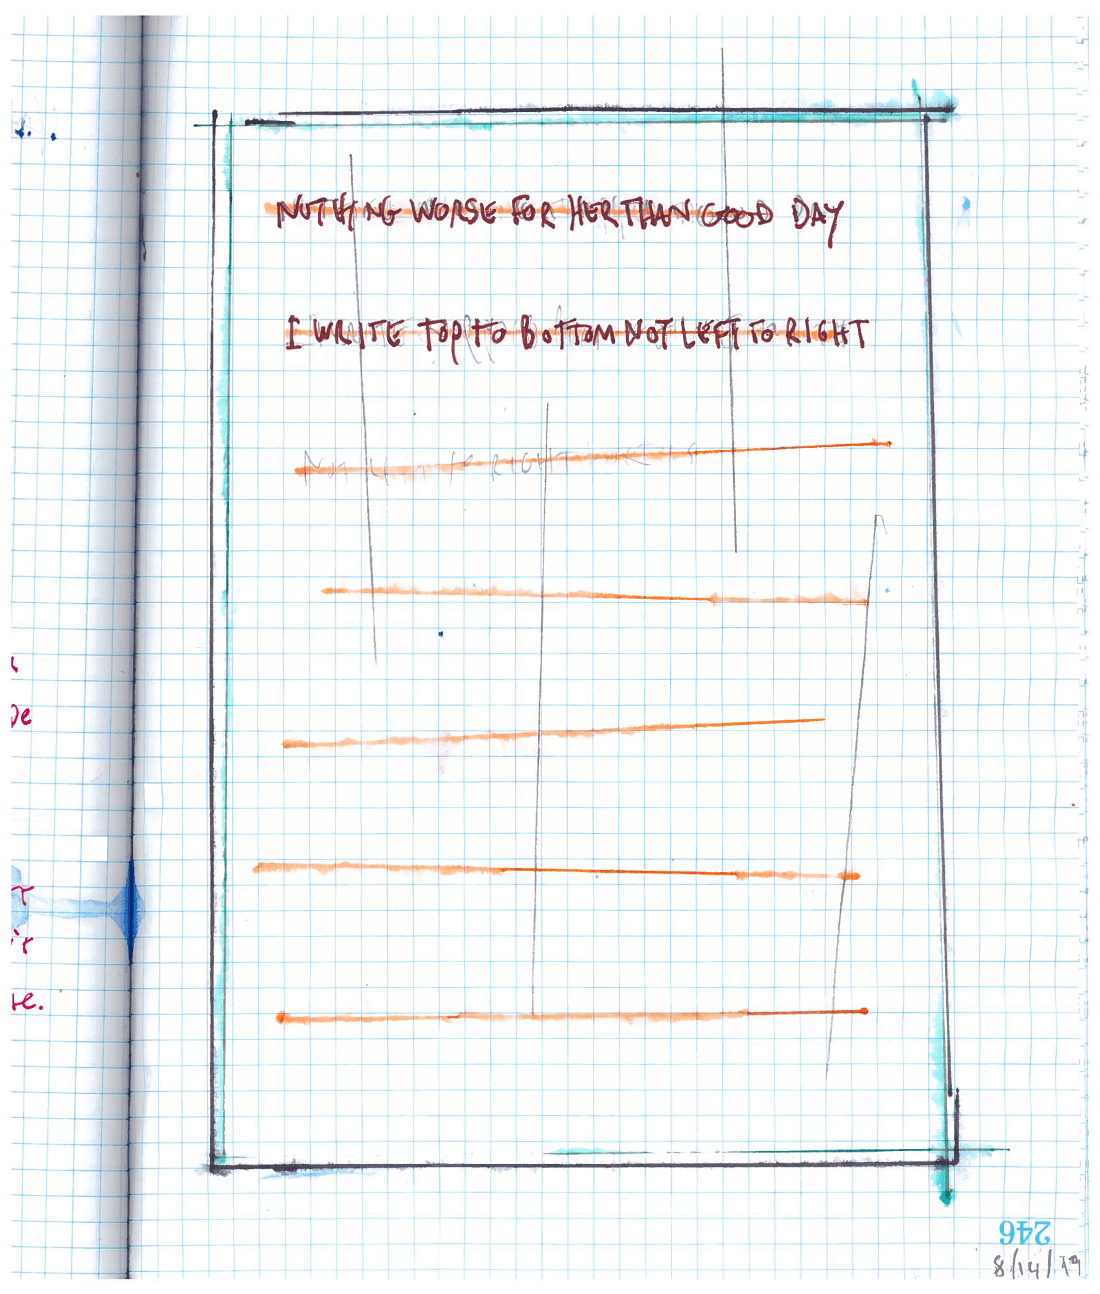 NOTHING WORSE FOR HER THAN GOOD DAY
I WRITE TOP TO BOTTOM NOT LEFT TO RIGHT
RIGHT
De
te.
246
8/14/19